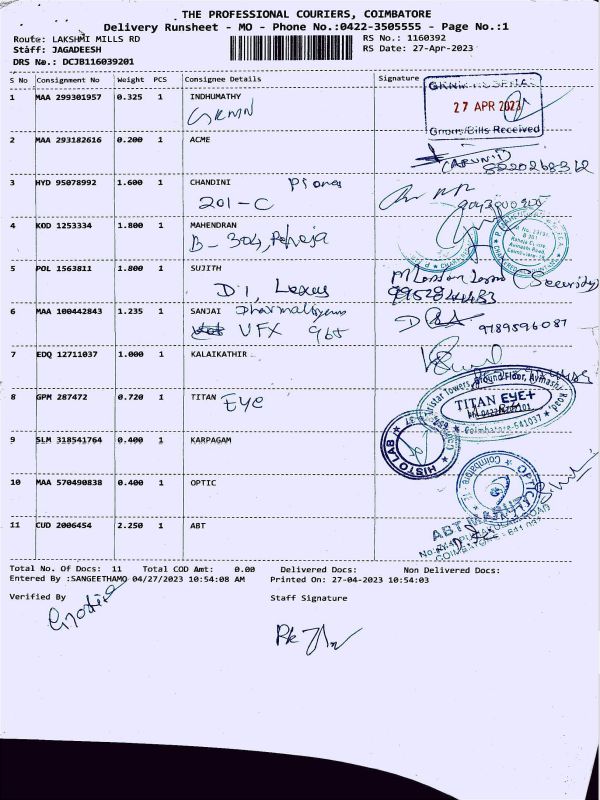 THE PROFESSIONAL COURIERS, COIMBATORE
Delivery Runsheet - MO - Phone No.:0422-3505555 - Page No.:1
Route: LAKSHMI MILLS RD
RS No.: 1160392
Staff: JAGADEESH
RS Date: 27-Apr-2023
DRS No.: DCJB116039201
S No Consignment No Weight PCS Consignee Details Signature
1 MAA 299301957 0.325 1 INDHUMATHY
GKMN
27 APR 2023
Goods/Bills Received
2 MAA 293182616 0.200 1 ACME
(ARUN)
8220268362
3 HYD 95078992 1.600 1 CHANDINI
201-C
4 KOD 1253334 1.800 1 MAHENDRAN
B-304, Raheja
5 POL 1563811 1.800 1 SUJITH
D1, Lexus
(Security)
9952844483
6 MAA 100442843 1.235 1 SANJAI
VFX 965
9789596087
7 EDQ 12711037 1.000 1 KALAIKATHIR
8 GPM 287472 0.720 1 TITAN Eye
Tristar towers, Ground Floor, Avinashi Road
TITAN EYE+
Coimbatore-641037
9 SLM 318541764 0.400 1 KARPAGAM
HISTO LAB
10 MAA 570490838 0.400 1 OPTIC
11 CUD 2006454 2.250 1 ABT
ABT MARUTI
Total No. Of Docs: 11 Total COD Amt: 0.00 Delivered Docs: Non Delivered Docs:
Entered By :SANGEETHAMO 04/27/2023 10:54:08 AM Printed On: 27-04-2023 10:54:03
Verified By
Staff Signature